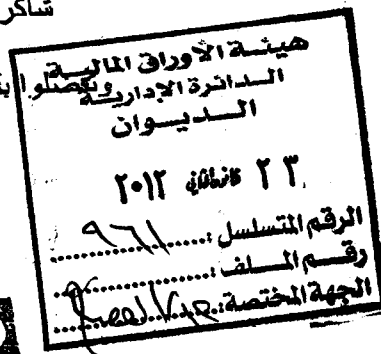 شاكر
وتفضلوا
هيئة الأوراق المالية
الدائرة الإدارية
الديوان
٢٣ كانون ثاني ٢٠١٢
الرقم المتسلسل : ٩٦١
رقم الملف :
الجهة المختصة :